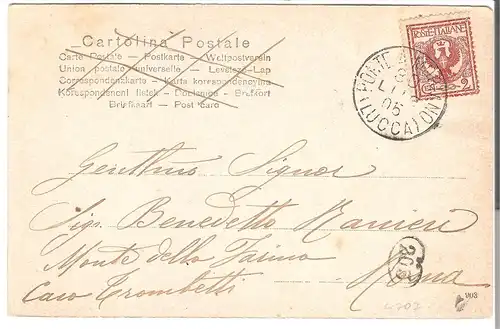 Cartolina Postale
Carte Postale — Postkarte — Weltpostverein
Union postale universelle — Levelező-Lap
Correspondenzkarte — Karta korespondencyjna
Korespondencní lístek — Dopisnice — Brefkort
Briefkaart — Post card
POSTE ITALIANE
2
PONTE A
LUG
05
(LUCCA)
Gentilmo Signor
Sig. Benedetto Ranieri
Monte della Farina
Caro Trombetti
Roma
203
4707
903